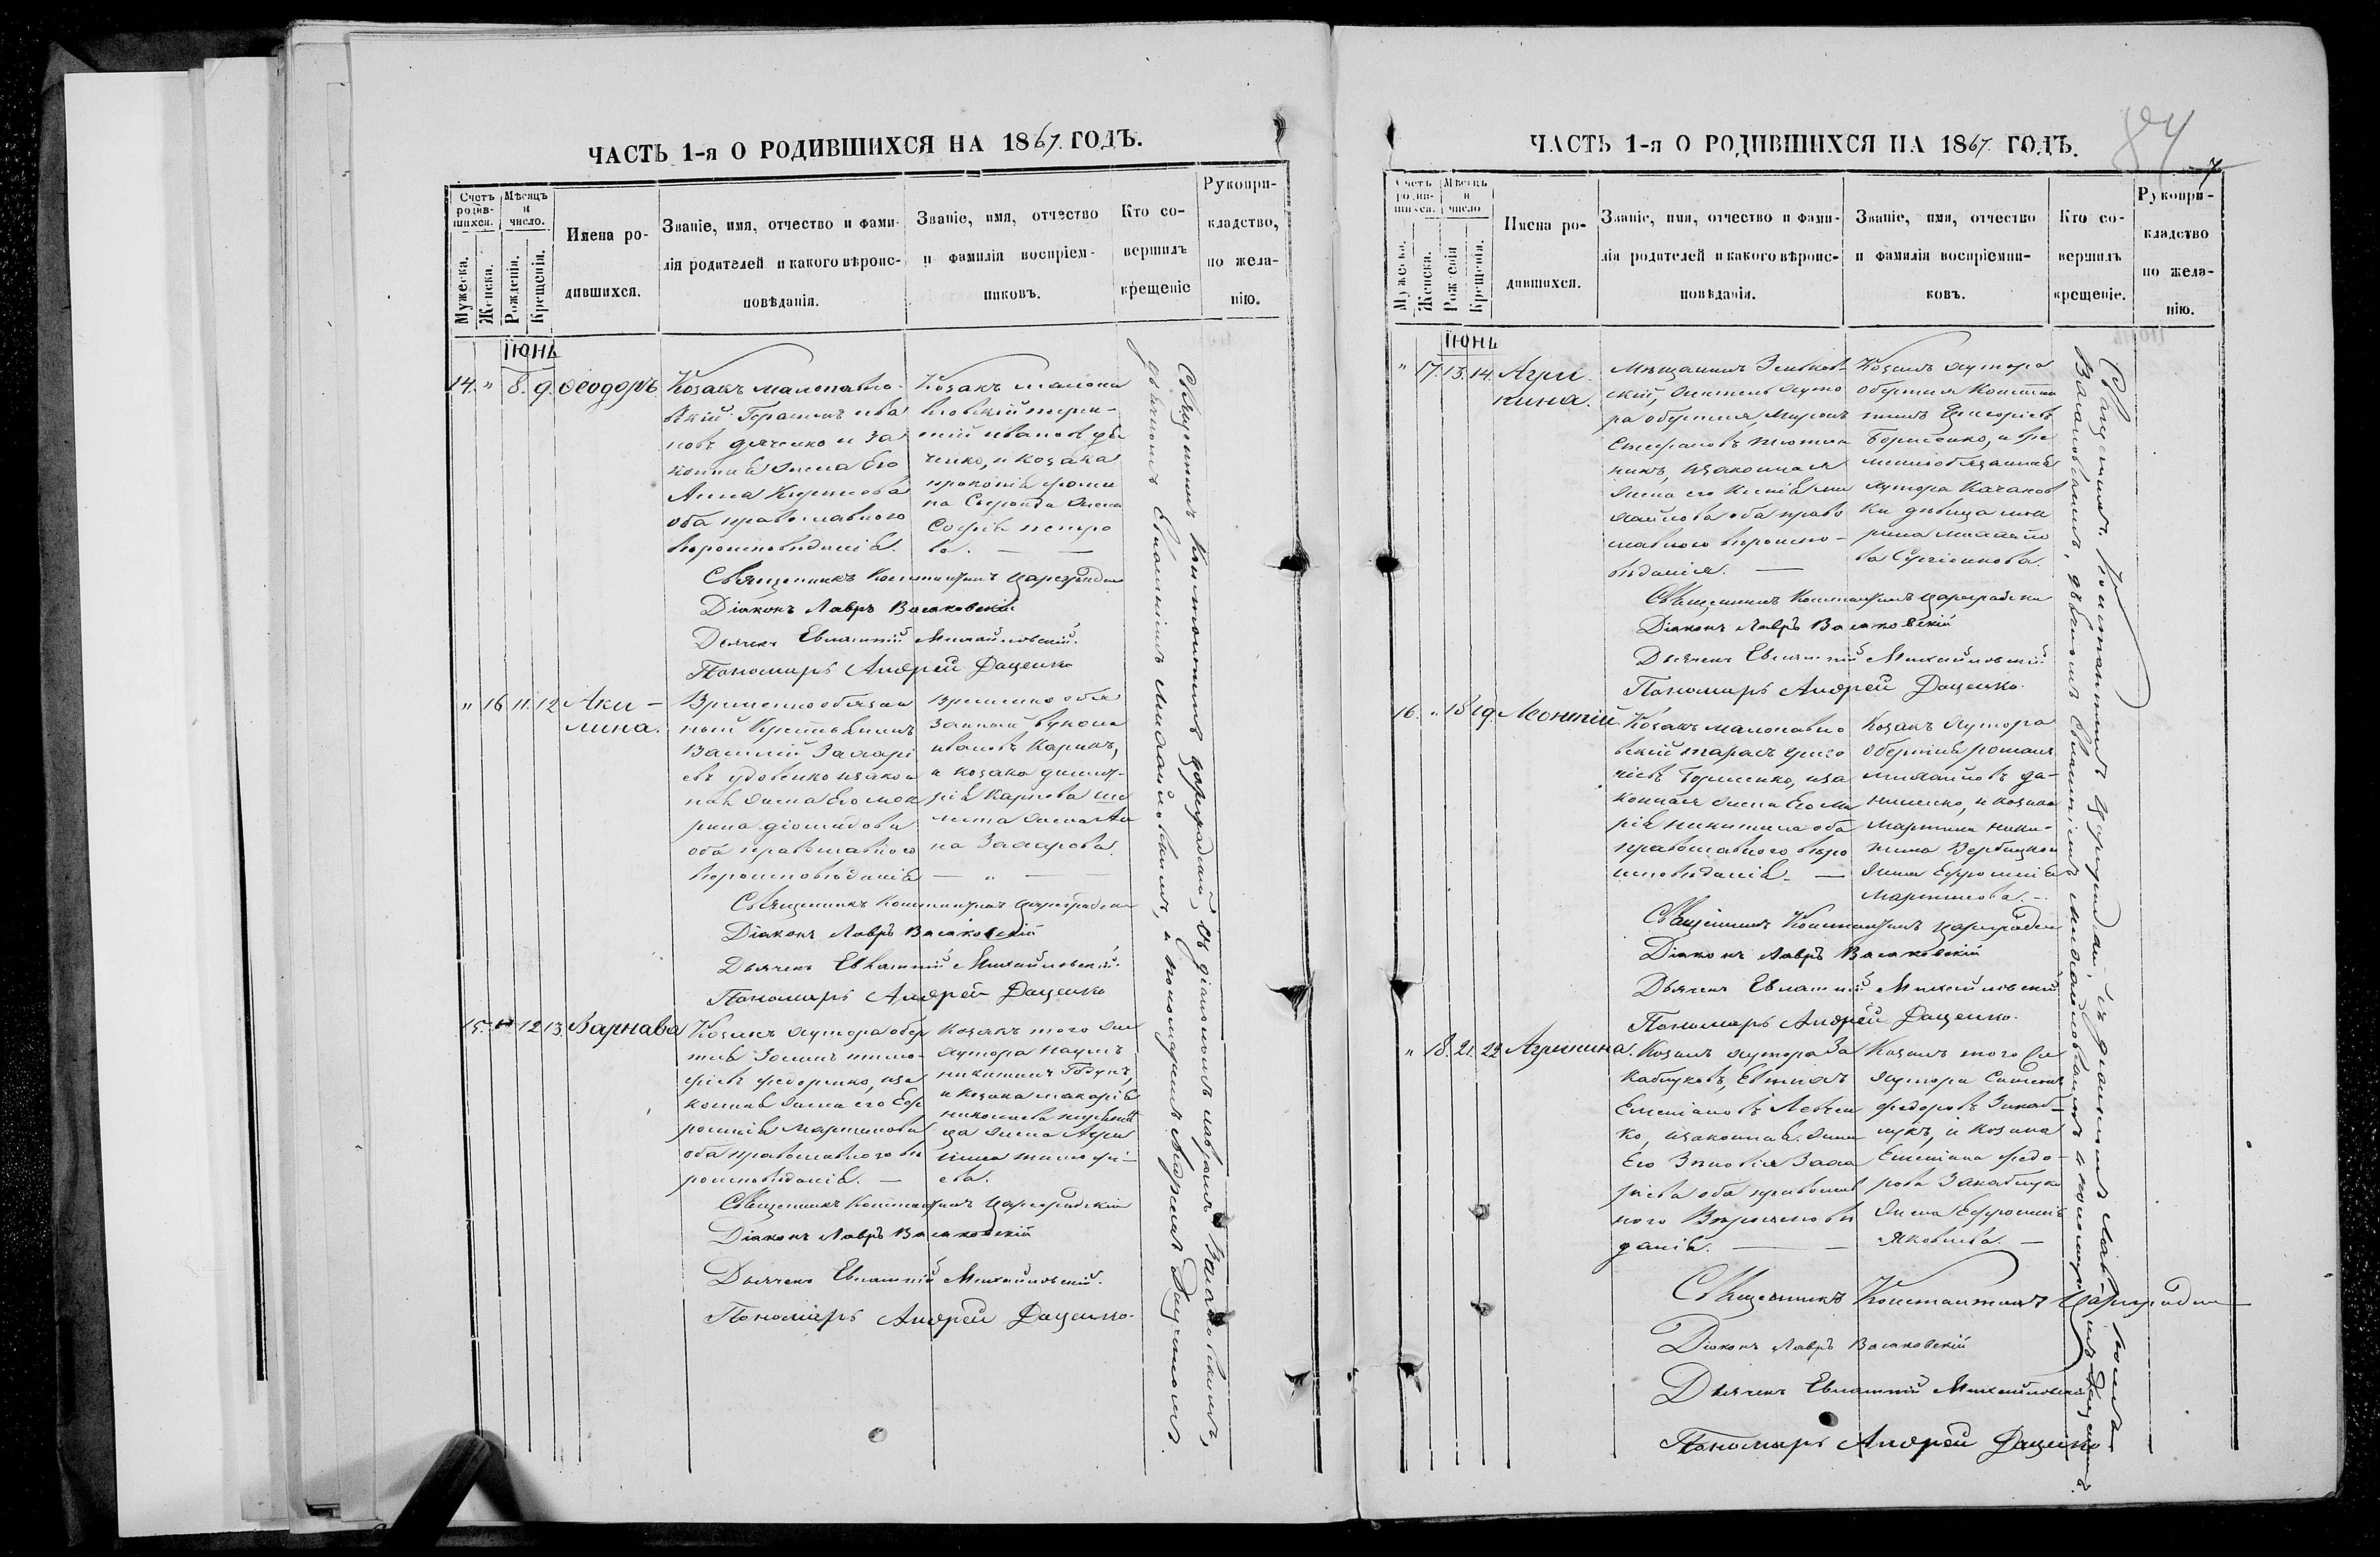 ЧАСТЬ 1-я О РОДИВШИХСЯ НА 1867 ГОДЪ.
Счетъ родив-шихся.
Мѣсяцъ и число.
Мужеска.
Женска.
Рожденія.
Крещенія.
Имена ро-
дившихся.
Званіе, имя, отчество и фами-
лія родителей и какого вѣроис-
повѣданія.
Званіе, имя, отчество
и фамилія воспріем-
никовъ.
Кто со-
вершилъ
крещеніе
Рукопри-
кладство,
по жела-
нію.
Іюнь
14. " 8. 9. Ѳеодоръ
Козакъ малопавло-
вскій Герасимъ ива
новъ дяченко и за
конная жена его
Анна
оба православного
вероисповѣданія.
Козакъ малопа
вловскій терен-
тій ивановъ дя
ченко, и козака
прокопія фоми
на жена
Софія петро
ва.
Священникъ Константинъ Цареградскій
Діаконъ Лавръ Васаковскій
Дьячекъ Евлампій Михайловскій.
Пономарь Андрей Даценко
" 16 11. 12 Аки-
лина.
Временнообязан
ный
Василій Захарі
евъ удовенко изакон
ная жена его мок
рина діомидова
оба православного
вероисповѣданія
Временно обя
занный
ивановъ Карпъ,
и козака димит-
рія Карпова
жена Ан
на Захарова.
Священникъ Константинъ Цареградскій
Діаконъ Лавръ Васаковскій
Дьячекъ Евлампій Михайловскій.
Пономарь Андрей Даценко
15. " 12 13. Варнава
Козакъ хутора обер
тня тимо-
фіевъ федоренко, иза
конная жена его Еф
росинія мартинова
оба православного ве
роисповѣданія.
Козакъ того же
хутора наумъ
никитинъ
и козака макарія
николаева
жена Агри
пина тимофі-
ева.
Священникъ Константинъ Цареградскій
Діаконъ Лавръ Васаковскій
Дьячекъ Евлампій Михайловскій.
Пономарь Андрей Даценко.
Священникъ Константинъ Цареградскій, съ діакономъ Лавромъ Васаковскимъ,
дьячкомъ Евлампіемъ Михайловскимъ, и пономаремъ Андреемъ Даценкомъ.
ЧАСТЬ 1-я О РОДИВШИХСЯ НА 1867 ГОДЪ.
84
7
Счетъ родив-шихся.
Мѣсяцъ и число
Мужеска.
Женска.
Рожденія
Крещенія.
Имена ро-
дившихся.
Званіе, имя, отчество и фами-
лія родителей и какого вѣроис-
повѣданія.
Званіе, имя, отчество
и фамилія воспріемни-
ковъ.
Кто со-
вершилъ
крещеніе.
Рукопри-
кладство
по жела-
нію.
Іюнь
" 17. 13. 14. Агри
пина.
Мѣщанинъ Зеньков-
скій, житель хуто
ра обертня, Миронъ
Стефановъ
никъ, изаконная
жена его Ксенія ми
хайлова оба право
славного вероиспо-
вѣданія.
Козакъ хутора
обертня Констан
тинъ Григоріевъ
Борисенко, и вре
меннообязанная
хутора Качанов
ки дѣвица мок
рина михайло
ва Сергіенкова.
Священникъ Константинъ Цареградскій
Діаконъ Лавръ Васаковскій
Дьячекъ Евлампій Михайловскій
Пономарь Андрей Даценко.
16. " 18 19. Леонтій
Козакъ малопавло
вскій тарасъ григо
ріевъ Борисенко, иза
конная жена его ма
рія никитина оба
православного веро
исповѣданія.
Козакъ хутора
обертня романъ
михайловъ да-
ниленко, и козака
мартина ники-
тина Вербицкого
жена Ефросинія
мартинова.
Священникъ Константинъ Цареградскій
Діаконъ Лавръ Васаковскій
Дьячекъ Евлампій Михайловскій
Пономарь Андрей Даценко.
" 18. 21. 22 Агрипина.
Козакъ хутора За
каблуковъ, Евтихъ
Емеліановъ Левчен
ко, изаконная жена
его Зиновія Заха
ріева оба православ
ного Вероисповѣ
данія.
Козакъ того же
хутора Симеонъ
федоровъ Закаб-
лукъ, и козака
Емеліана федо-
рова Закаблука
жена Ефросинія
Яковлева.
Священникъ Константинъ Цареградскій
Діаконъ Лавръ Васаковскій
Дьячекъ Евлампій Михайловскій
Пономарь Андрей Даценко
Священникъ Константинъ Цареградскій съ діакономъ Лавромъ
Васаковскимъ, дьячкомъ Евлампіемъ Михайловскимъ и пономаремъ Даценкомъ.